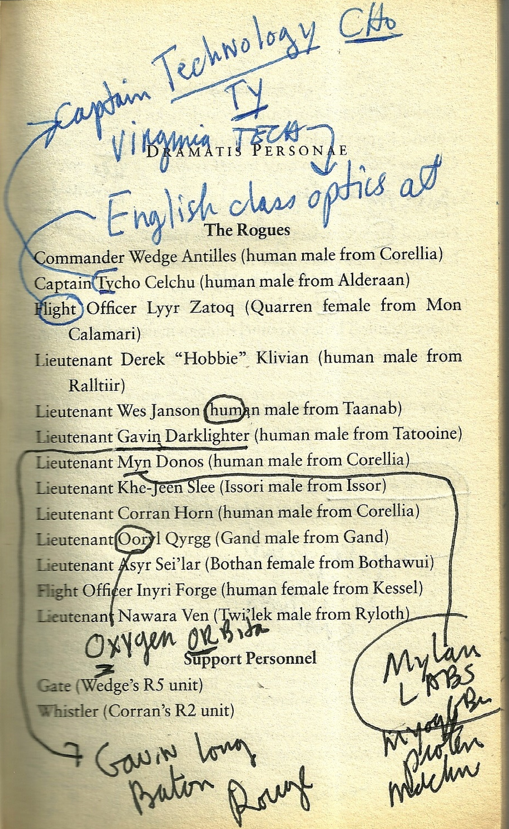 Captain Technology CHo
TY
Virginia TECH
DRAMATIS PERSONAE
English class optics at
The Rogues
Commander Wedge Antilles (human male from Corellia)
Captain Tycho Celchu (human male from Alderaan)
Flight Officer Lyyr Zatoq (Quarren female from Mon
Calamari)
Lieutenant Derek “Hobbie” Klivian (human male from
Ralltiir)
Lieutenant Wes Janson (human male from Taanab)
Lieutenant Gavin Darklighter (human male from Tatooine)
Lieutenant Myn Donos (human male from Corellia)
Lieutenant Khe-Jeen Slee (Issori male from Issor)
Lieutenant Corran Horn (human male from Corellia)
Lieutenant Ooryl Qyrgg (Gand male from Gand)
Lieutenant Asyr Sei'lar (Bothan female from Bothawui)
Flight Officer Inyri Forge (human female from Kessel)
Lieutenant Nawara Ven (Twi'lek male from Ryloth)
Oxygen ORBita
Support Personnel
Gate (Wedge's R5 unit)
Whistler (Corran's R2 unit)
Mylan
LABS
Gavin long
Baton Rouge